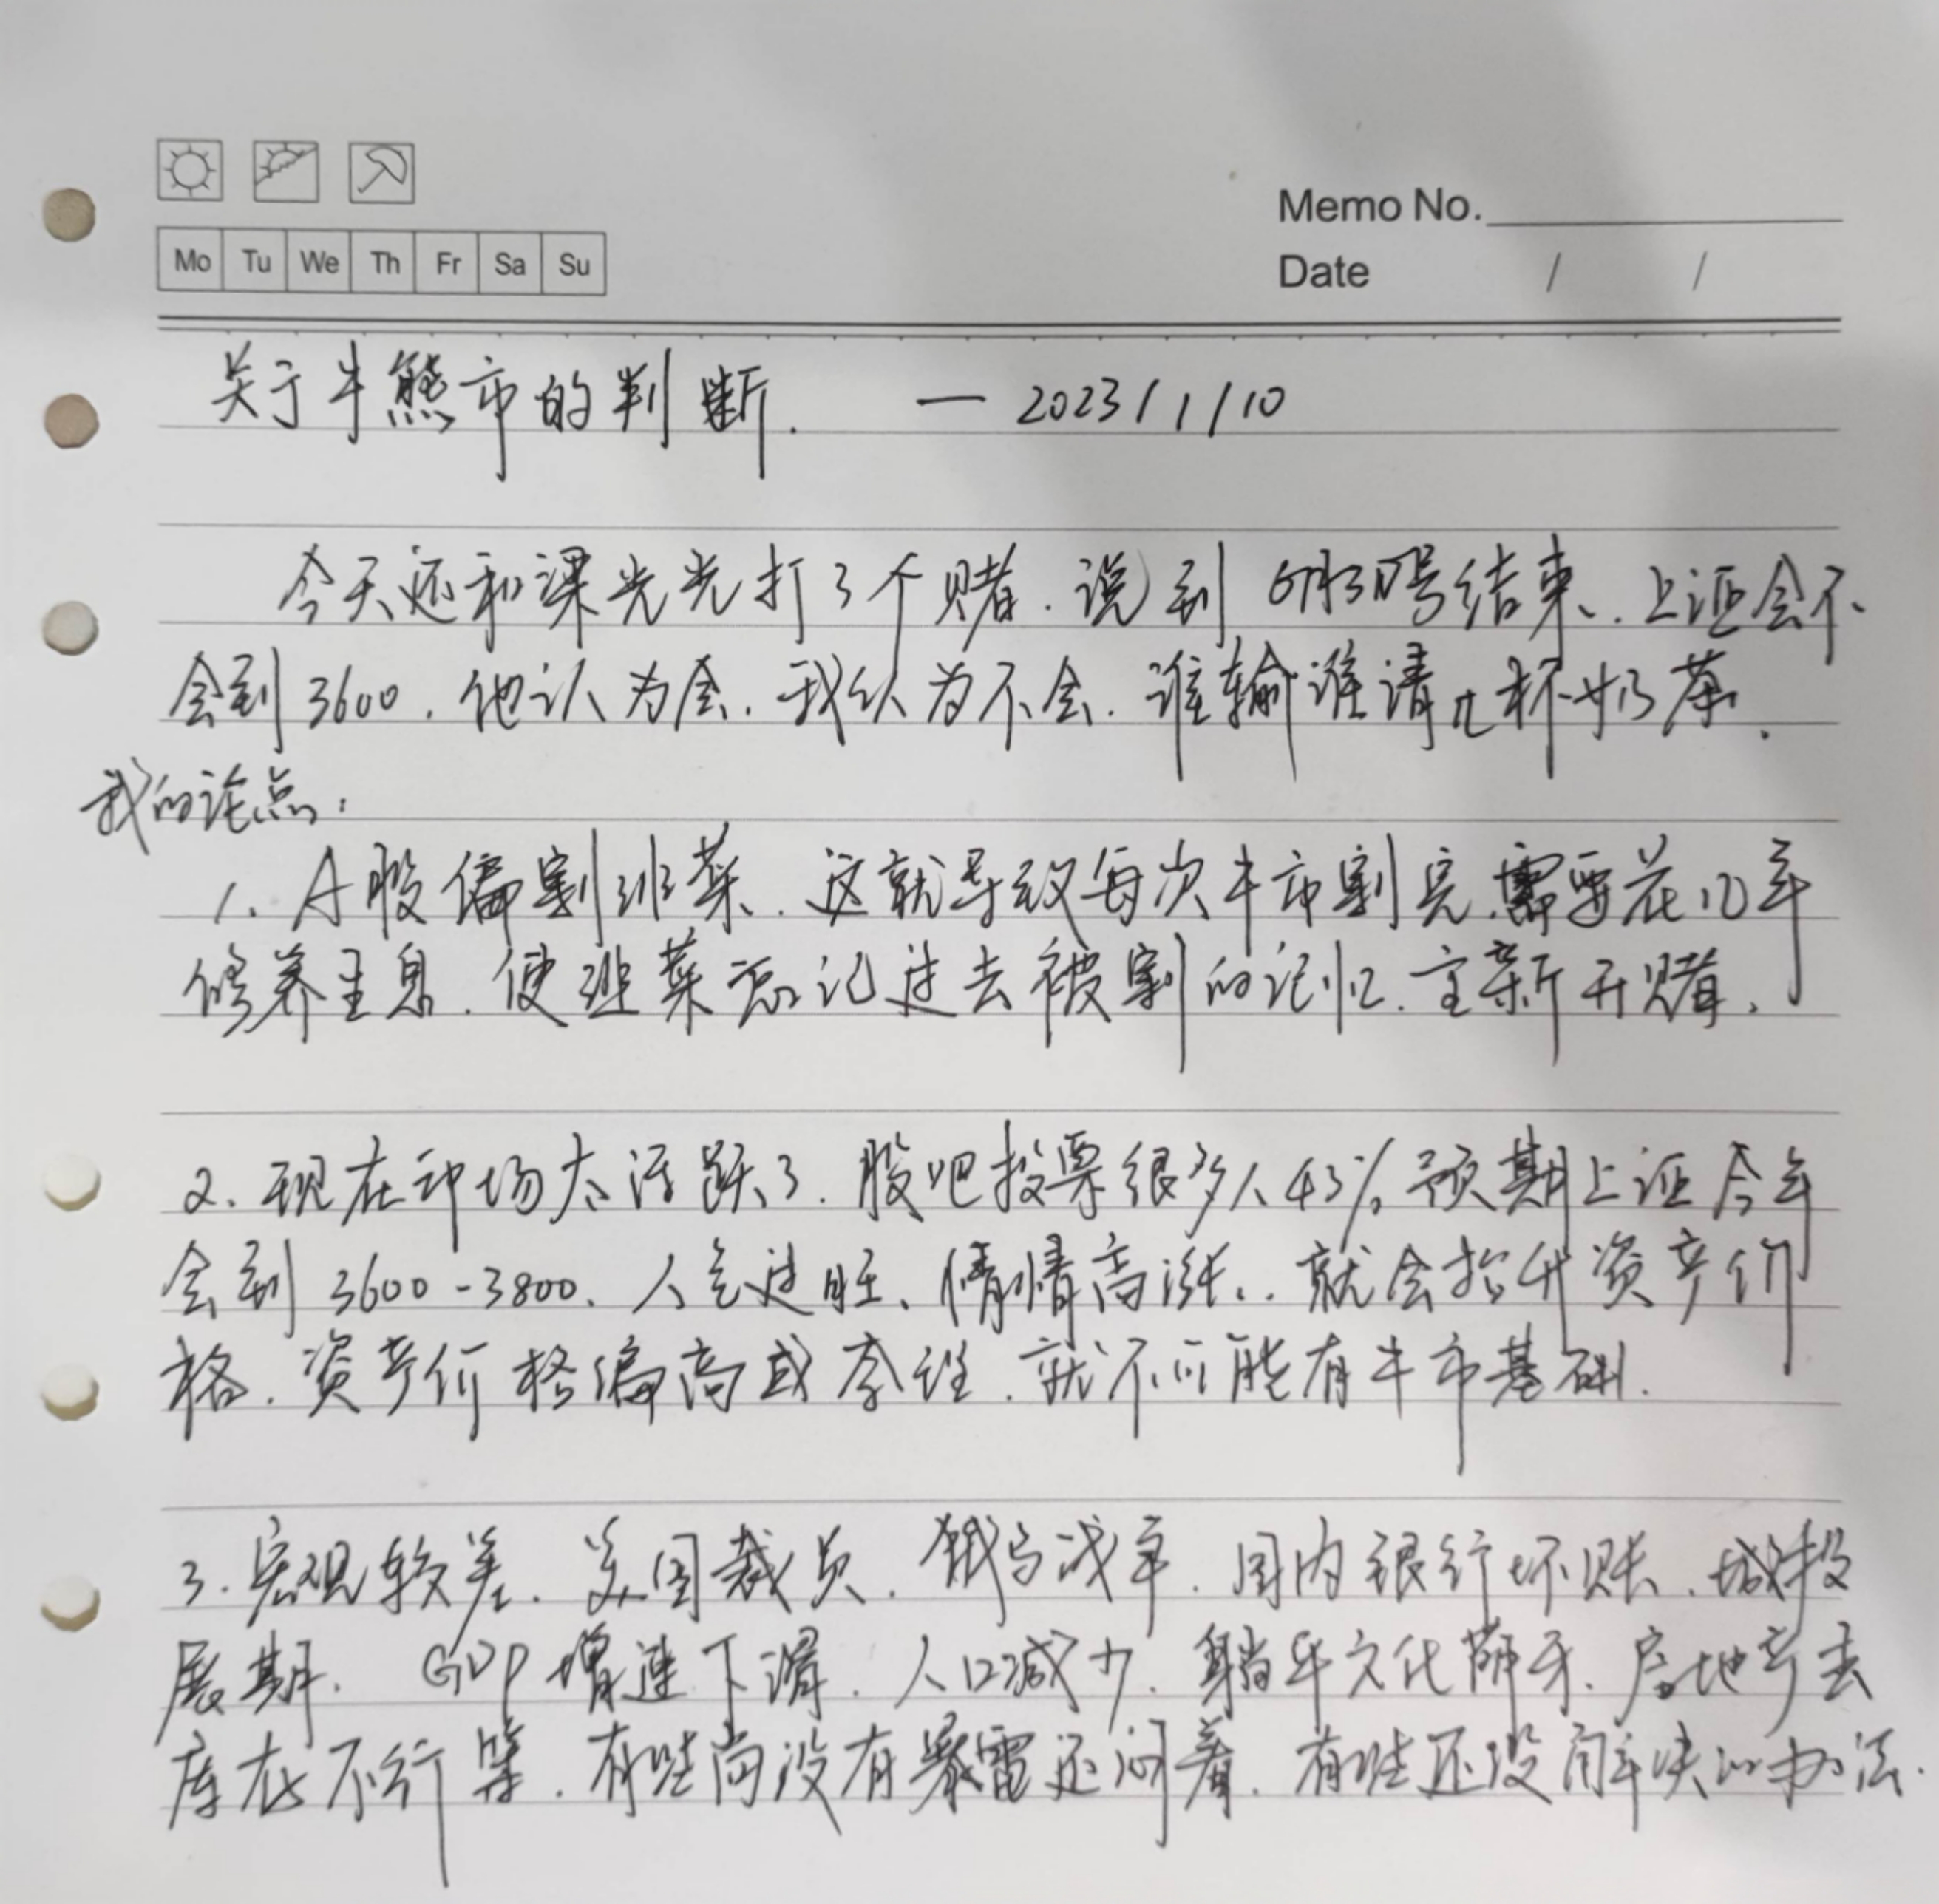 Memo No.
Mo Tu We Th Fr Sa Su
Date / /
关于牛熊市的判断. — 2023/1/10
今天还和课光光打了个赌.说到6月30号结束.上证会不
会到3600.他认为会.我认为不会.谁输谁请几杯奶茶.
我的论点:
1. A股偏割韭菜.这就导致每次牛市割完.需要花几年
修养生息.使韭菜忘记过去被割的记忆.重新开赌.
2. 现在市场太活跃了.股吧投票很多人43%预期上证今年
会到3600-3800、人气过旺、情绪高涨..就会抬升资产价
格.资产价格偏高或合理.就不可能有牛市基础.
3. 宏观较差.美国裁员.俄乌战争.国内银行坏账.城投
展期. GDP增速下滑.人口减少.躺平文化萌芽.房地产去
库存不行等.有些尚没有暴雷还闷着.有些还没解决的办法.